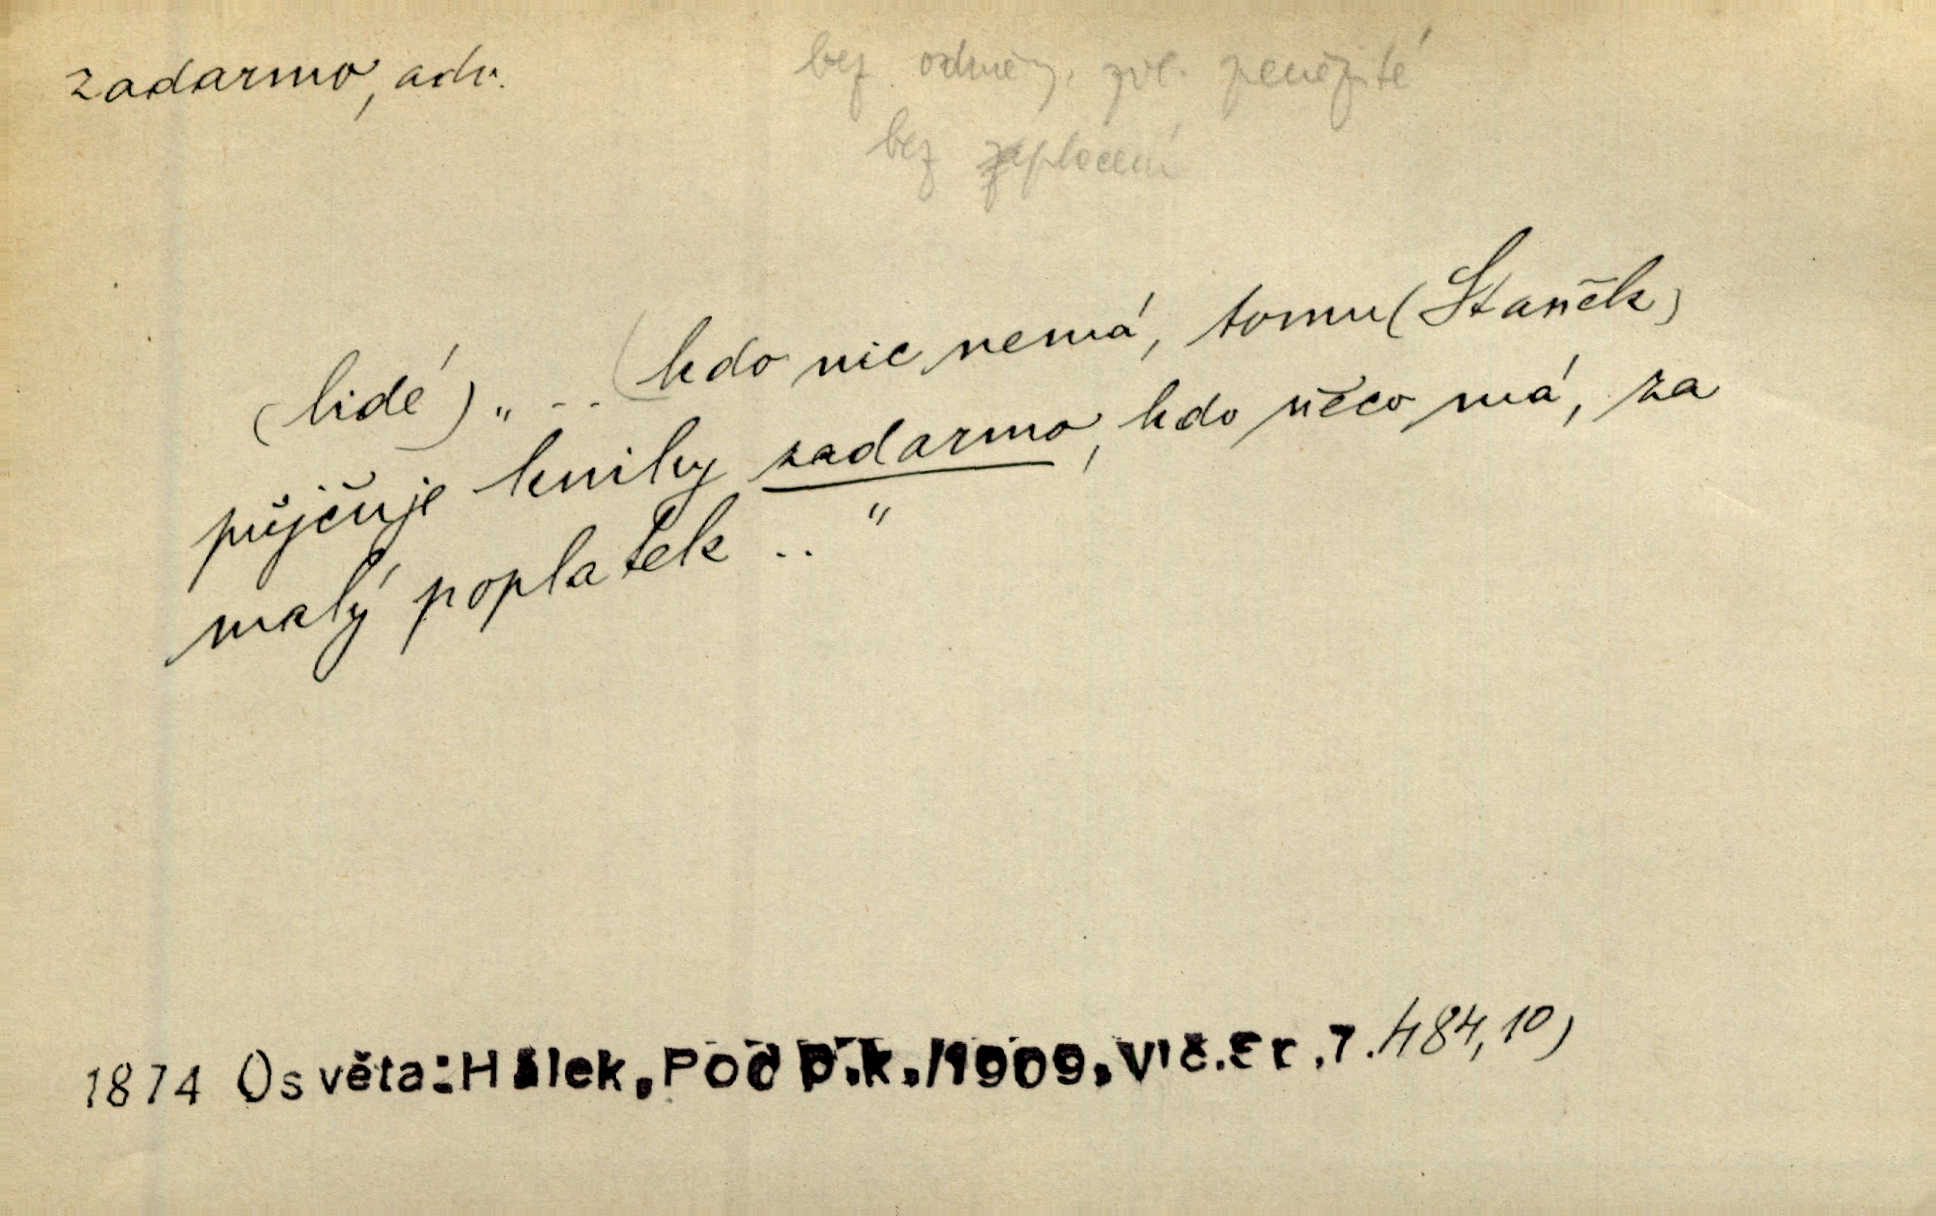 zadarmo, adv.
bez odměny, zvl. peněžité
bez zaplacení
(lidé) „ ... (kdo nic nemá, tomu (Staněk)
půjčuje knihy zadarmo, kdo něco má, za
malý poplatek .. "
1874 Osvěta: Hálek, Pod p.k./1909, Vlč. Er. 7. 484, 10)